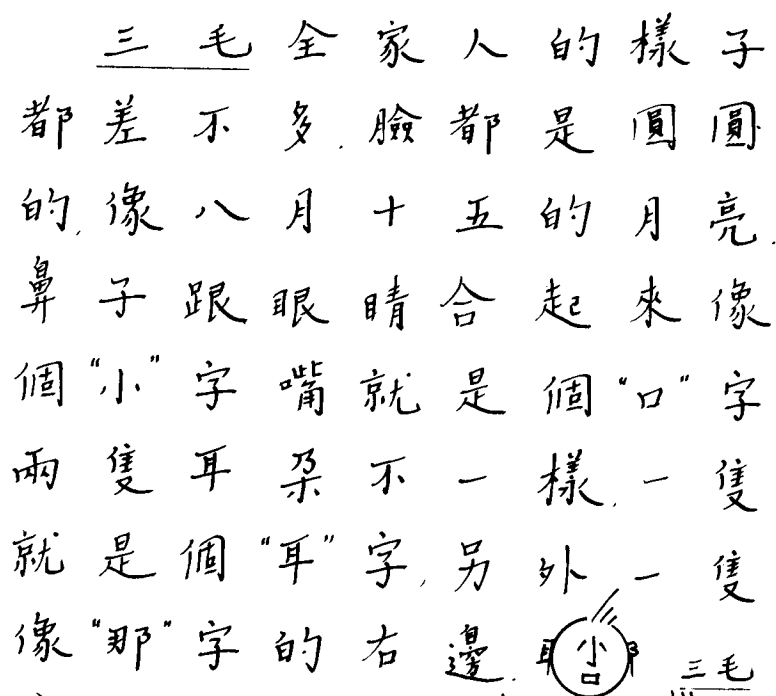 三毛全家人的樣子
都差不多.臉都是圓圓
的.像八月十五的月亮.
鼻子跟眼睛合起來像
個"小"字嘴就是個"口"字
兩隻耳朵不一樣.一隻
就是個"耳"字.另外一隻
像"那"字的右邊.耳小口阝
三毛